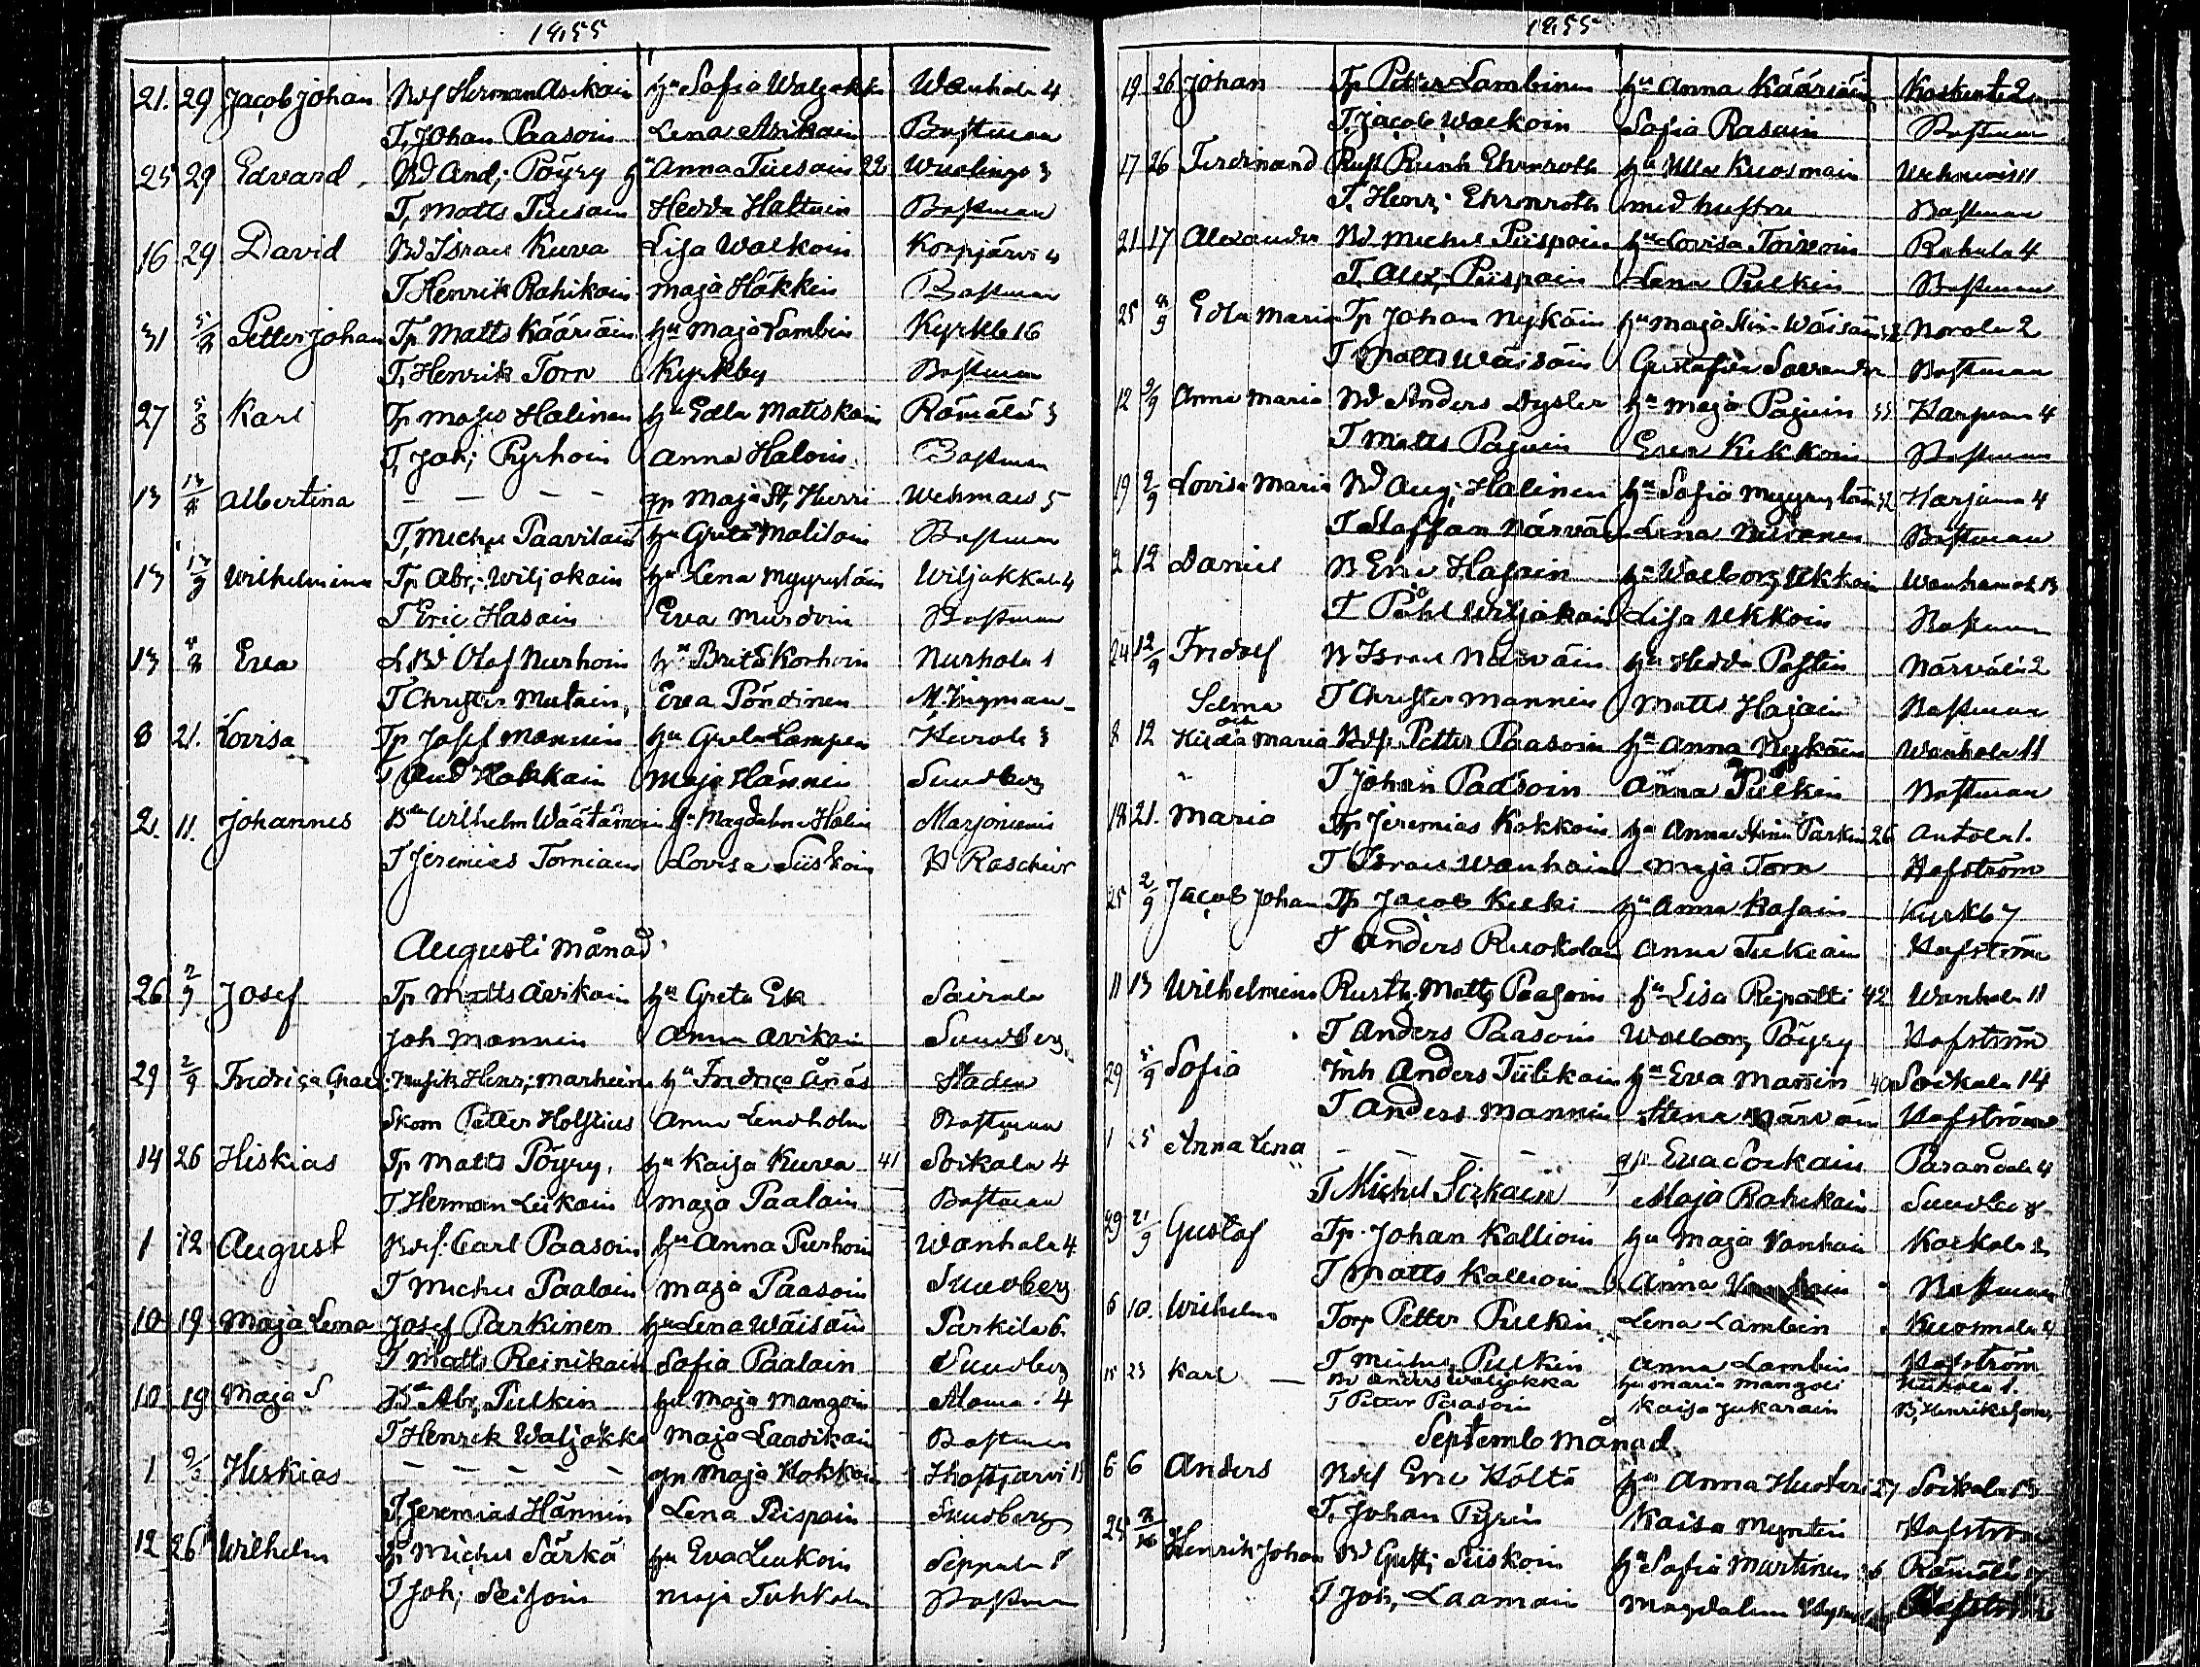 1855
21. 29 Jacob Johan Ndf Herman Asikain hu Sofia Waljakka Wanhala 4
T, Johan Paasoin Lena Asikain Bostman
25 29 Edvard Nd And; Pöyry hu Anna Tiusain 22 3
T, Matts Tiusain Hedda Haltuin Bostman
16 29 David Nd Israel Kurva Lisa Walkoin Korpjärvi 4
T Henrik Rahikain Maja Häkkin Bostman
31 5/8 Petter Johan Tp Matts Kääriäin hu Maja Lambin Kyrkb 16
T, Henrik Torn Kyrkby Bostman
27 5/8 Karl Tp Halinen hu Edla Matiskain Rämälä 3
T, Joh; Pyrhöin Anna Haloin Bostman
13 13/8 Albertina — — — — qp Maja St, Hurri Wehmais 5
T, Michel Paavilain hu Greta Malilain Bostman
13 Wilhelmina Tp Abr; Wiljakain hu Lena Myyryläin Wiljakkala 4
T Eric Hasain Eva Bostman
13 Eva Nd Olof Nurhoin hu Brita Korhoin Nurhola 1
T Christer Mutain, Eva Pöndinen M. Ingman
8 21. Lovisa Tp Josef Mannin hu Greta Lampen Kurola 3
T And Kokkain Maja Hännin Sundberg
2. 11. Johannes Wilhelm Wäätämöin Magdalena Halin Marjoniemi
T Jeremias Torniain Lovisa Siiskoin
Augusti månad
26 2/9 Josef Tp Matts Avikain hu Greta Ek Sairala
Joh Mannin Anna Avikain Sundberg
29 2/9 Musik Henr; hu Fredrica Ånäs Staden
Skom Petter Holstius Anna Lindholm Bostman
14 26 Hiskias Tp Matts Pöyry, hu Kaisa Kurva 41 Soikala 4
T Herman Liikain Maja Paalain Bostman
1 12 August Ndf. Carl Paasoin hu Anna Purhoin Wanhala 4
T Michel Paalain Maja Paasoin Sundberg
10 19 Maja Lena Josef Parkinen hu Lena Wäisäin Parkila 6.
T Matts Reinikain Sofia Paalain Sundberg
10 19 Maja S Abr, Pulkin hu Maja Mangoin 4
T Henrik Waljakka Maja Laadikain Bostman
1 Hiskias — — — — — qp Maja Kokkoin
T, Jeremias Hännin Lena Piispain Sundberg
12 26 Wilhelm Tp Michel Särkä hu Eva Liukoin Seppälä
T Joh; Seisoin Maja Tuhkain Bostman
1855
19 26 Johan Tp Petter Lambinen hu Anna Kääriäin
T, Jacob Walkoin Sofia Rasain Bostman
17 26 Ferdinand Rust Ehrnroth hu Ulla Kuosmain
T. Henr; Ehrnroth med hustru Bostman
21 17 Alexander Nd Michel Piispain hu Lovisa Toivoin Rahula 4
T. Alex; Piispain Lena Pulkin Bostman
25 Edla Maria Tp Johan Nykäin hu Maja Stin. Wäisäin 32 Norola 2
T Matts Wäisäin Gustafva Savander Bostman
12 9/9 Anna Maria Nd Anders Dysler hu Maja Pajuin 33 4
T Matts Pajuin Eva Kekkoin Bostman
19 9/9 Lovisa Maria Nd Aug; Halinen hu Sofia Myyryläin 32 Karjuma 4
T Staffan Närväi Lena Bostman
2 12 Daniel N Eric Hasain hu Walborg Ukkoin
T Påhl Wiljakain Lisa Ukkoin Bostman
24 12/9 Fridolf N Israel Närväin hu Hedda Pastin Närvälä 2
T Christer Mannin Matts Hasain Bostman
Selma och
8 12 Hilda Maria Ndf. Petter Paasoin hu Anna Nykäin Wanhala 11
" T Johan Paasoin Anna Pulkin Bostman
18 21. Maria Tp Jeremias Kokkoin hu Anna Stina Parkin 26 Antola 1.
T Israel Wanhain Maja Torn Hafström
25 2/9 Jacob Johan Tp Jacob Kulki hu Anna Kasain Kyrkb 7
T Anders Ruokolain Anna Tukiain Hafström
11 13 Wilhelmina Rusth. Matts Paasoin hu Lisa Ripatti 42 Wanhala 11
T Anders Paasoin Walborg Pöyry Hafström
29 5/9 Sofia Inh Anders Tiilikain hu Eva Mannin 40 Soikala 14
T Anders Mannin Stina Närväin Hafström
1 25 Anna Lena — — — — qp Eva Soikain Parandala 4
T Michel Soikain Maja Rahikain Sundberg
29 21/9 Gustaf Tp. Johan Kallioin hu Maja Vanhain Korkala
T Matts Kallioin Anna Bostman
6 10. Wilhelm Torp Petter Pulkin Lena Lambin Kuosmala
T Michel Pulkin Anna Lambin Hafström
15 23 Karl — Nd Anders Waljakka hu Maria Mangoi
T Petter Paasoin Kaisa Jukarain
Septemb månad
6 6 Anders Ndf Eric Höltä hu Anna 27 Soikala 13
T. Johan Pyrin Kaisa Myntin Hafström
25 Henrik Johan Nd Gust; Siiskoin hu Sofia Martinen 36 Rämälä
T Joh, Laamain Magdalena Hafström